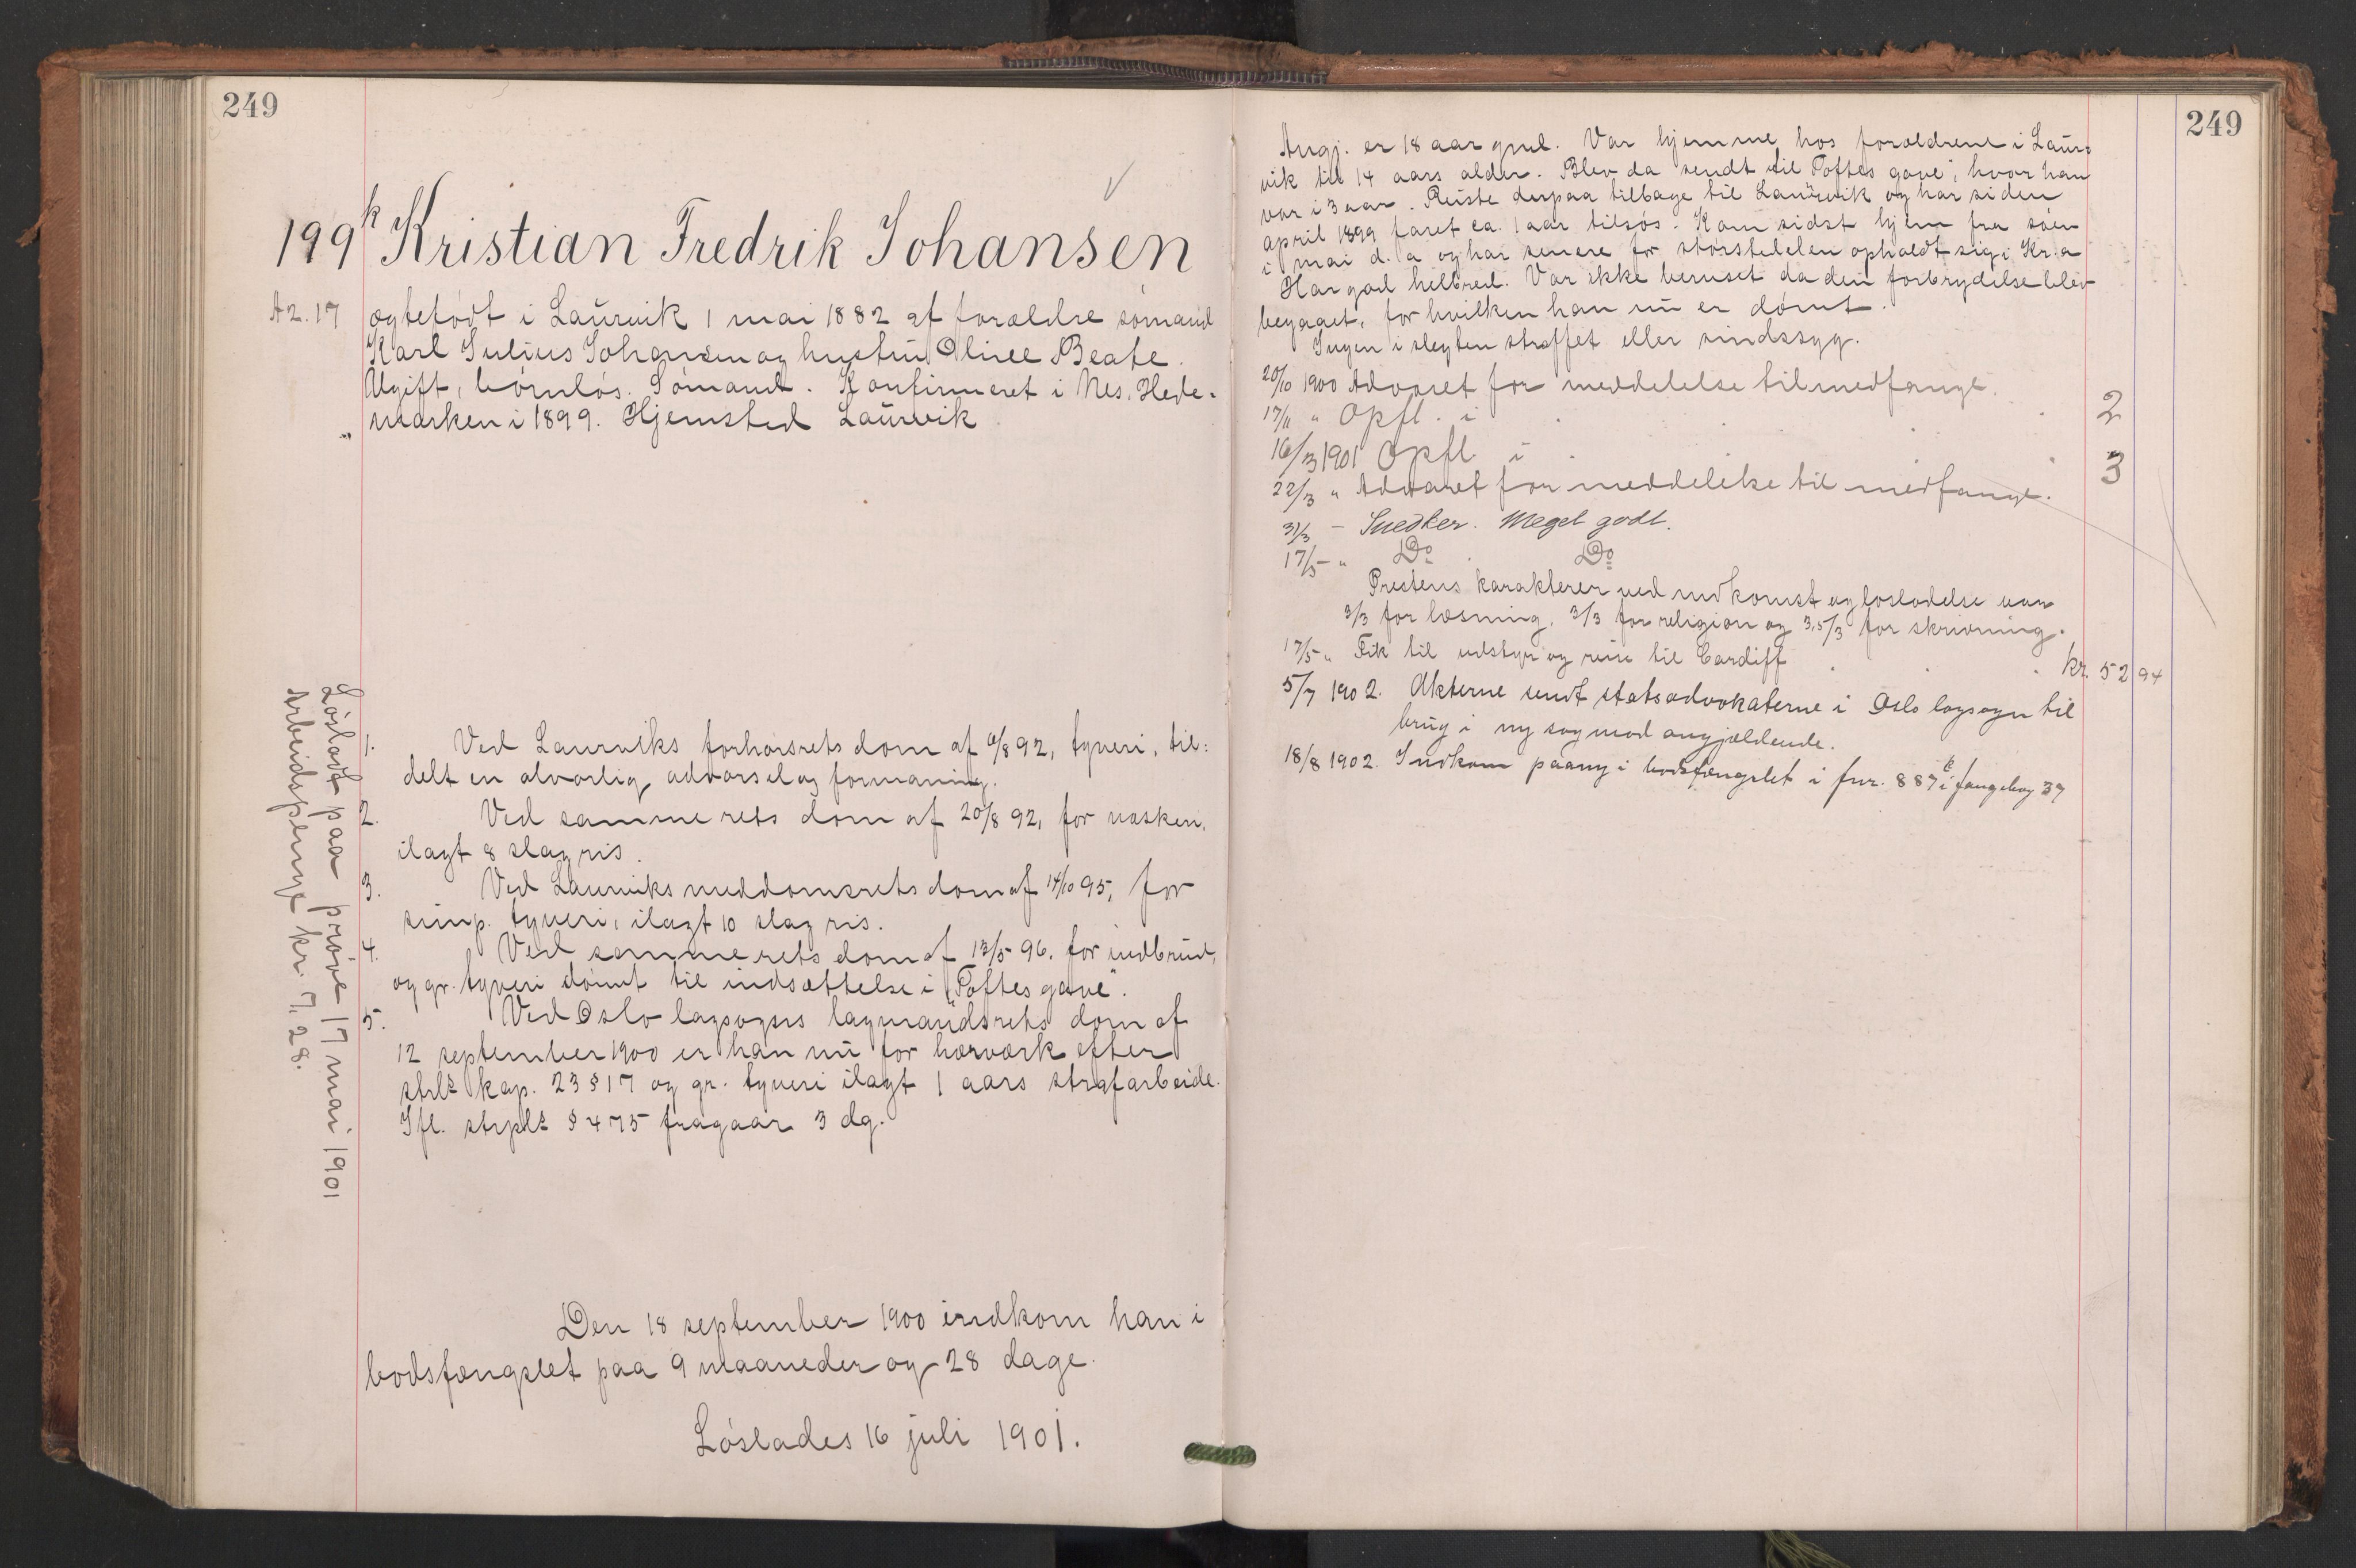 249
199k Kristian Fredrik Johansen
A2.17
ægtefødt i Laurvik 1 mai 1882 af forældre sømand
Karl Julius Johansen og hustru Oliee Beate.
Ugift, børnløs. Sømand. Konfirmeret i Nes. Hede-
marken i 1899. Hjemsted Laurvik
1. Ved Laurviks forhørsrets dom af 6/8 92, tyveri, til-
delt en alvorlig advarsel og formaning.
2. Ved samme rets dom af 20/8 92, for nasken.
ilagt 8 slag ris.
3. Ved Laurviks meddomsrets dom af 14/10 95, for
simp. tyveri, ilagt 10 slag ris.
4. Ved samme rets dom af 13/5 96. for indbrud,
og gr. tyveri dømt til indsættelse i "Toftes gave".
5. Ved Oslo lagsogns lagmandsrets dom af
12 september 1900 er han nu for hærværk efter
strls kap. 23 § 17 og gr. tyveri ilagt 1 aars strafarbeide.
Ifl. strpls § 475 fragaar 3 dg.
Løsladt paa prøve 17 mai 1901
Arbeidspenge kr. 7.28.
Den 18 september 1900 indkom han i
bodsfængslet paa 9 maaneder og 28 dage.
Løslades 16 juli 1901.
249
Angj. er 18 aar gml. Var hjemme hos forældrene i Laur-
vik til 14 aars alder. Blev da sendt til Toftes gave, hvor han
var i 3 aar. Reiste derpaa tilbage til Laurvik og har siden
april 1899 faret ca. 1 aar tilsøs. Kom sidst hjem fra søen
i mai d. a og har senere for størstedelen opholdt sig i Kr.a
Har god helbred. Var ikke beruset da den forbrydelse blev
begaaet, for hvilken han nu er dømt.
Ingen i slegten straffet eller sindssyg.
20/10 1900 Advaret for meddelelse til medfange.
17/11 " Opfl. i . . . 2
16/3 1901 Opfl. i . . . 3
22/3 " Advaret for meddelelse til medfange.
31/3 - Snedker. Meget godt.
17/5 " Do Do
Prestens karakterer ved indkomst og løsladelse var
3/3 for læsning, 3/3 for religion og 3,5/3 for skrivning.
17/5 " Fik til udstyr og reise til Cardiff . . . kr. 52 94
5/7 1902. Akterne sendt statsadvokaterne i Oslo lagsogn til
brug i ny sag mod angjældende.
18/8 1902. Indkom paany i bodsfængslet i fnr. 887 k i fangebog 37